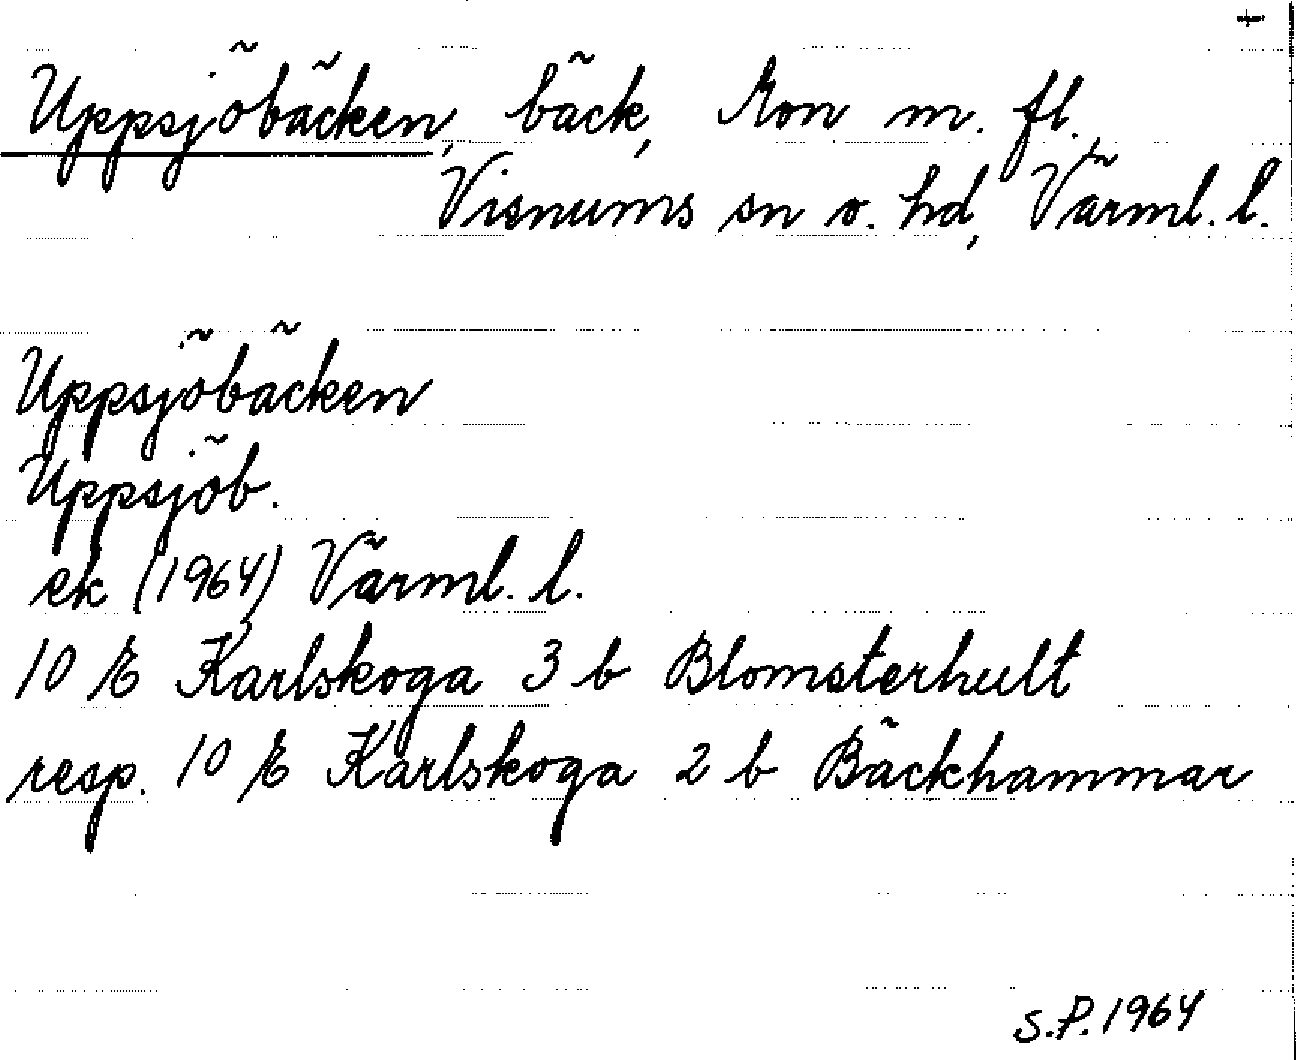 +
Uppsjöbäcken, bäck, Mon m. fl.
Visnums sn o. hd, Värml. l.
Uppsjöbäcken
Uppsjöb.
ek (1964) Värml. l.
10 E Karlskoga 3 b Blomsterhult
resp. 10 E Karlskoga 2 b Bäckhammar
S.P. 1964